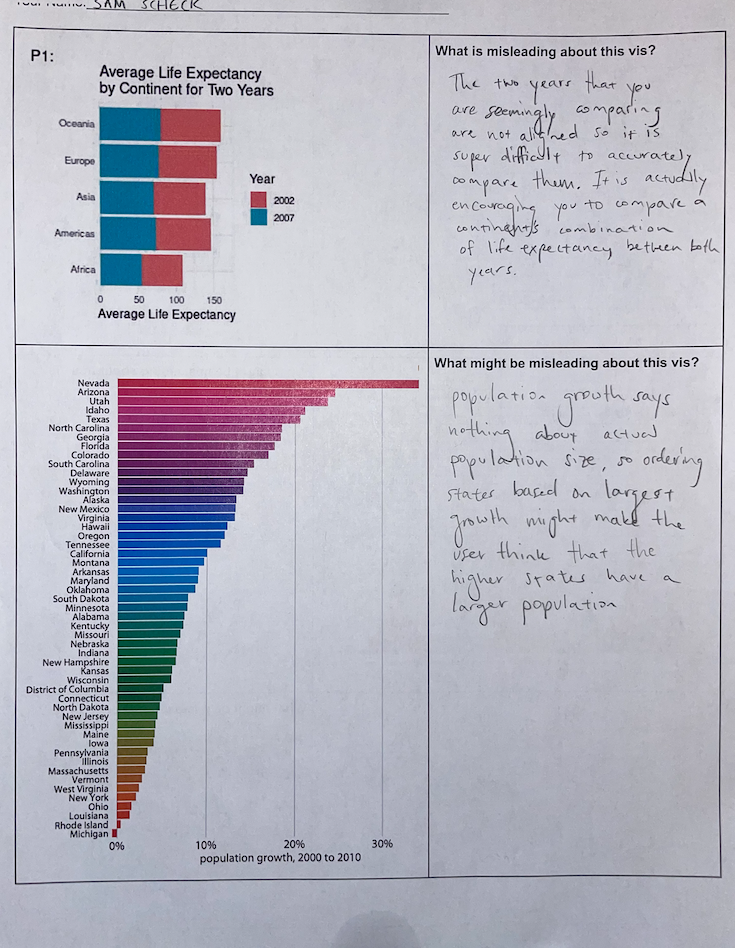 Your Name: SAM SCHECK
P1:
Average Life Expectancy
by Continent for Two Years
Oceania
Europe
Asia
Americas
Africa
0 50 100 150
Average Life Expectancy
Year
2002
2007
What is misleading about this vis?
The two years that you
are seemingly comparing
are not aligned so it is
super difficult to accurately
compare them. It is actually
encouraging you to compare a
continent's combination
of life expectancy between both
years.
Nevada
Arizona
Utah
Idaho
Texas
North Carolina
Georgia
Florida
Colorado
South Carolina
Delaware
Wyoming
Washington
Alaska
New Mexico
Virginia
Hawaii
Oregon
Tennessee
California
Montana
Arkansas
Maryland
Oklahoma
South Dakota
Minnesota
Alabama
Kentucky
Missouri
Nebraska
Indiana
New Hampshire
Kansas
Wisconsin
District of Columbia
Connecticut
North Dakota
New Jersey
Mississippi
Maine
Iowa
Pennsylvania
Illinois
Massachusetts
Vermont
West Virginia
New York
Ohio
Louisiana
Rhode Island
Michigan
0% 10% 20% 30%
population growth, 2000 to 2010
What might be misleading about this vis?
population growth says
nothing about actual
population size, so ordering
states based on largest
growth might make the
user think that the
higher states have a
larger population